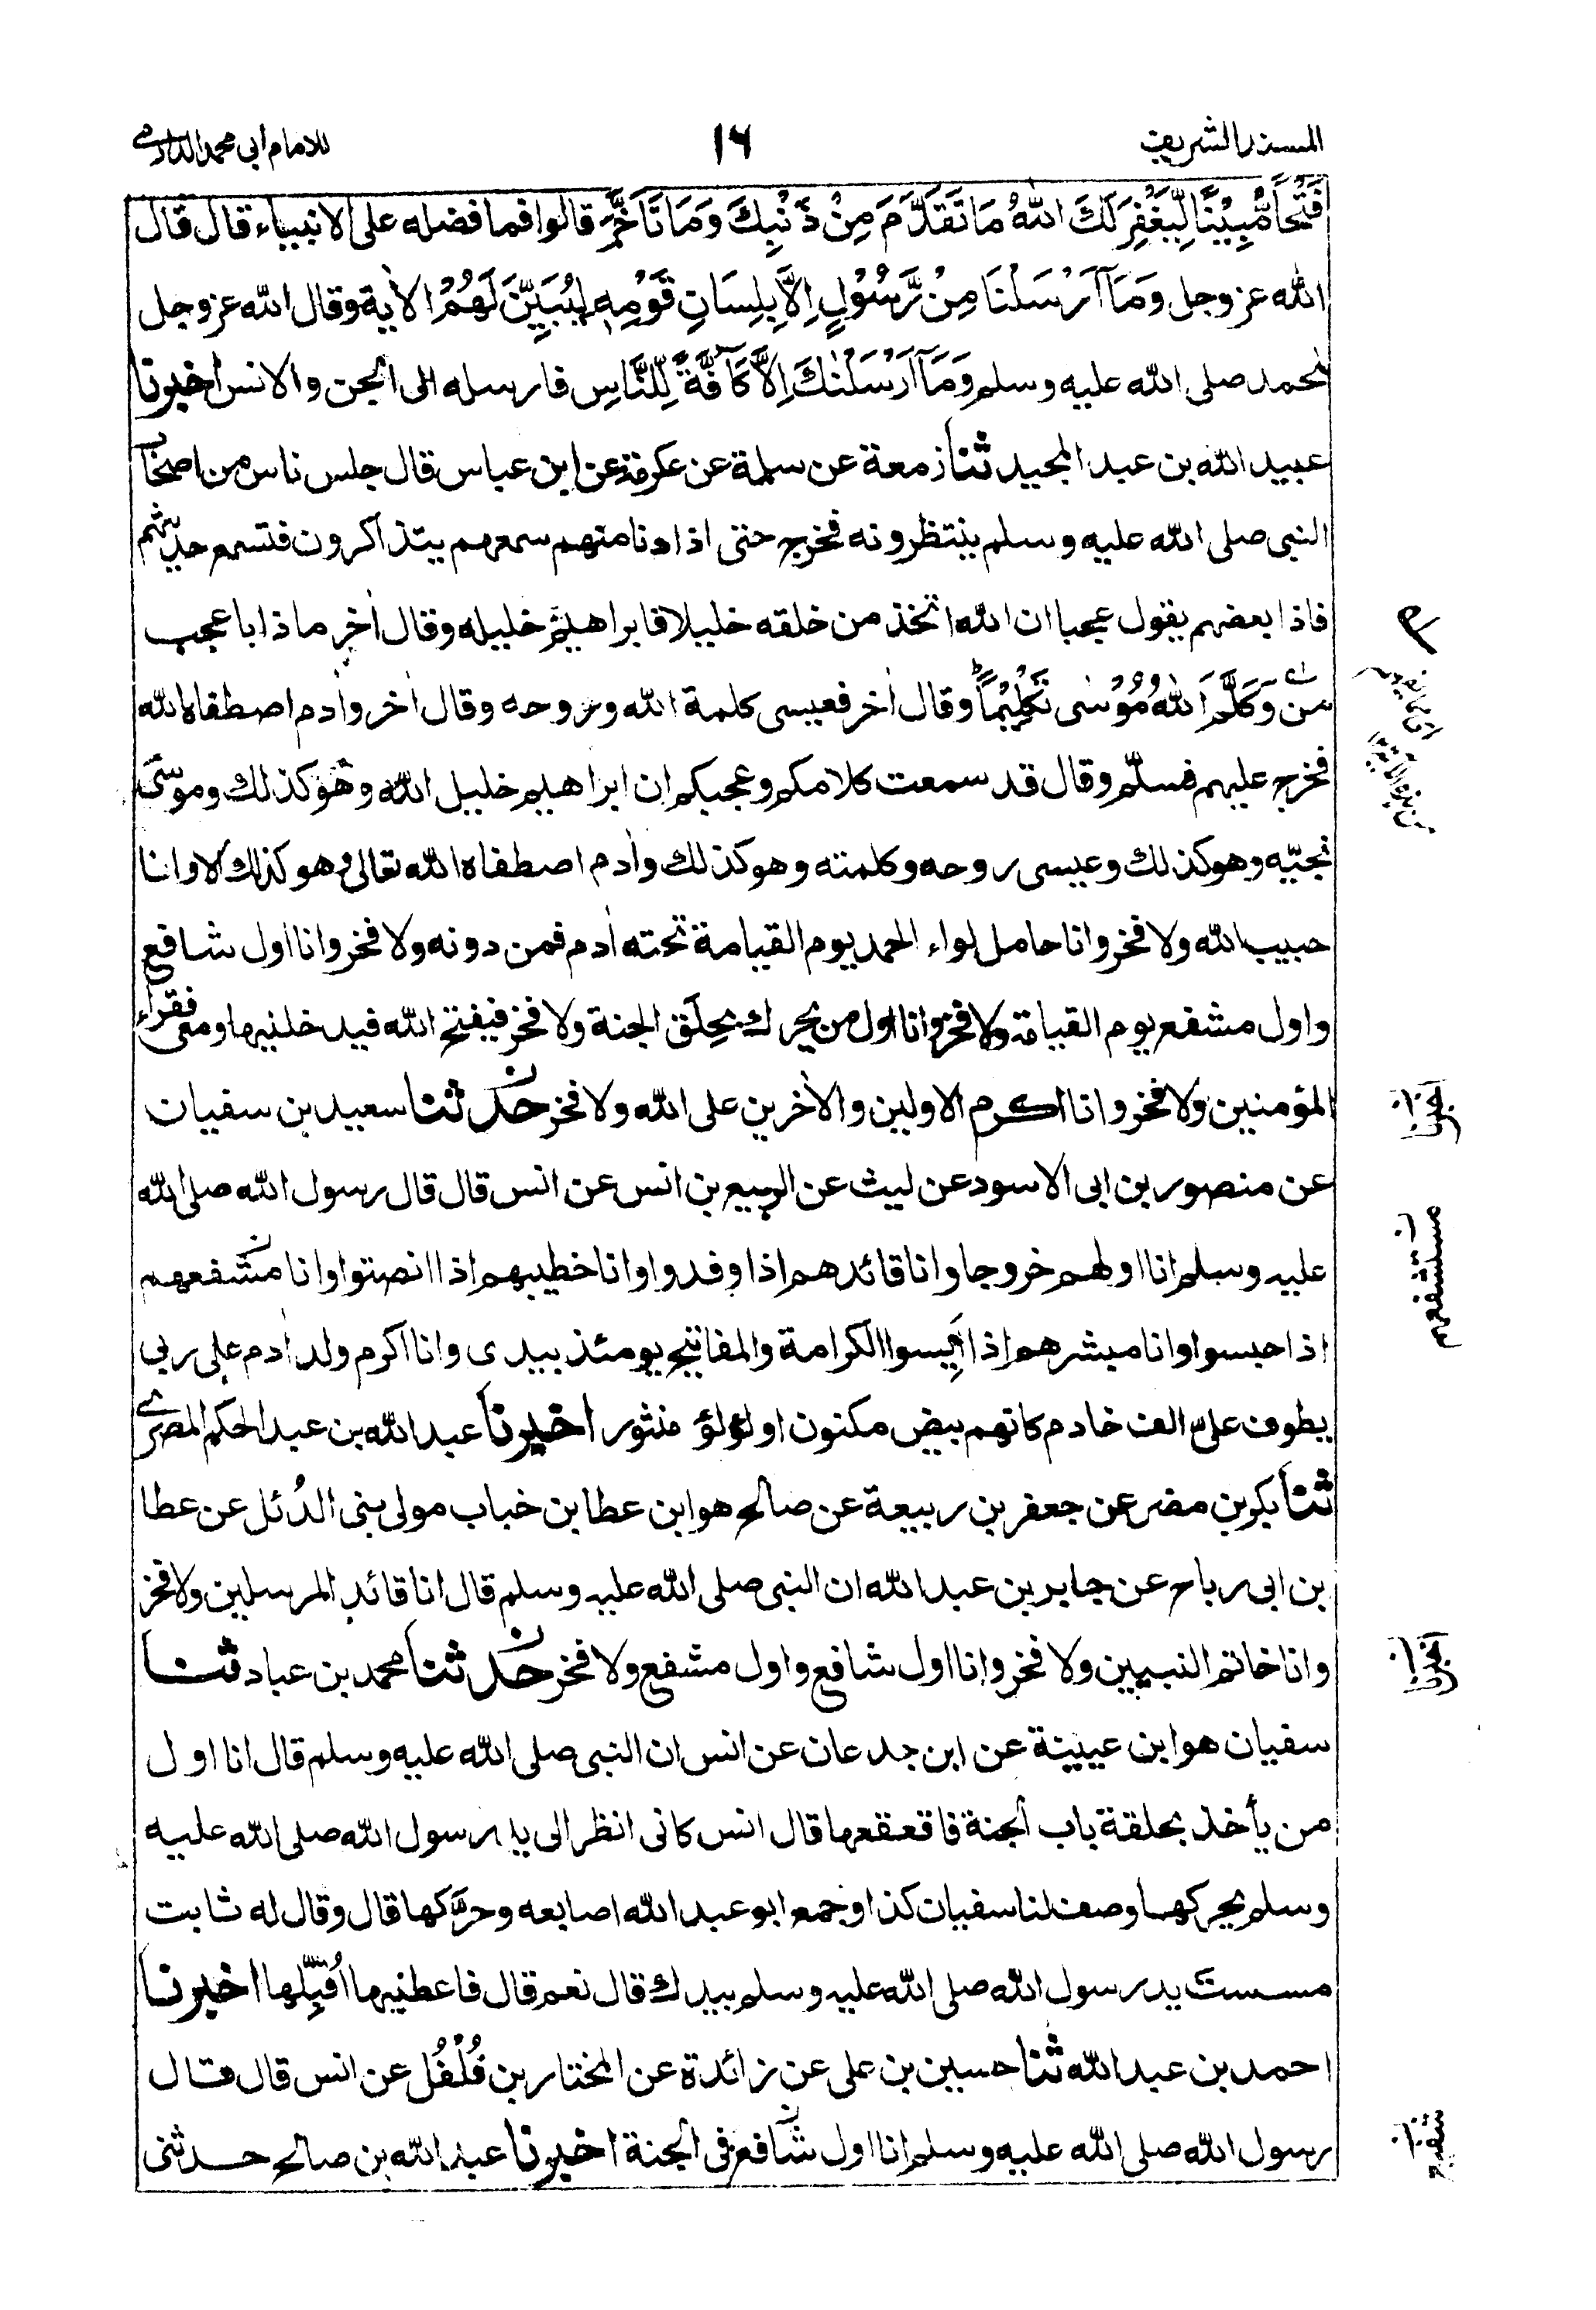 المسند الشريف
١٦
للامام ابى محمد الدارمى
فَتْحًا مُّبِيْنًا لِّيَغْفِرَ لَكَ اللهُ مَا تَقَدَّمَ مِنْ ذَنْبِكَ وَمَا تَاَخَّرَ قالوا فما فضله على الانبياء قال قال
الله عزوجل وَمَآ اَرْسَلْنَا مِنْ رَّسُوْلٍ اِلَّا بِلِسَانِ قَوْمِهٖ لِيُبَيِّنَ لَهُمْ الأية وقال الله عزوجل
لمحمد صلى الله عليه وسلم وَمَآ اَرْسَلْنٰكَ اِلَّا كَآفَّةً لِّلنَّاسِ فارسله الى الجن والانس اخبرنا
عبيد الله بن عبد المجيد ثنا زمعة عن سلمة عن عكرمة عن ابن عباس قال جلس ناس من اصحاب
النبى صلى الله عليه وسلم ينتظرونه فخرج حتى اذا دنا منهم سمعهم يتذاكرون فتسمع حديثهم
فاذا بعضهم يقول عجبا ان الله اتخذ من خلقه خليلا فابراهيم خليله وقال أخر ماذا باعجب
من وَكَلَّمَ اللهُ مُوْسٰى تَكْلِيْمًا وقال أخر فعيسى كلمة الله وروحه وقال أخر وأدم اصطفاه الله
فخرج عليهم فسلّم وقال قد سمعت كلامكم وعجبكم ان ابراهيم خليل الله وهو كذلك وموسى
نجيّه وهو كذلك وعيسى روحه وكلمته وهو كذلك وأدم اصطفاه الله تعالى وهو كذلك الا وانا
حبيب الله ولا فخر وانا حامل لواء الحمد يوم القيامة تحته أدم فمن دونه ولا فخر وانا اول شافع
واول مشفع يوم القيامة ولا فخر وانا اول من يحرك بحِلَق الجنة ولا فخر فيفتح الله فيدخلنيها ومعى فقراء
المؤمنين ولا فخر وانا اكرم الاولين والأخرين على الله ولا فخر حدثنا سعيد بن سفيان
عن منصور بن ابى الاسود عن ليث عن الربيع بن انس عن انس قال قال رسول الله صلى الله
عليه وسلم انا اولهم خروجا وانا قائدهم اذا وفدوا وانا خطيبهم اذا انصتوا وانا مشفعهم
اذا حبسوا وانا مبشرهم اذا اَيِسوا الكرامة والمفاتيح يومئذ بيدى وانا اكرم ولد أدم على ربى
يطوف علىّ الف خادم كانهم بيض مكنون او لؤلؤ منثور اخبرنا عبد الله بن عبد الحكم المصرى
ثنا بكر بن مضر عن جعفر بن ربيعة عن صالح هو ابن عطا بن خباب مولى بنى الدُئل عن عطا
بن ابى رباح عن جابر بن عبد الله ان النبى صلى الله عليه وسلم قال انا قائد المرسلين ولا فخر
وانا خاتم النبيين ولا فخر وانا اول شافع واول مشفع ولا فخر حدثنا محمد بن عباد ثنا
سفيان هو ابن عيينة عن ابن جدعان عن انس ان النبى صلى الله عليه وسلم قال انا اول
من يأخذ بحلقة باب الجنة فاقعقعها قال انس كانى انظر الى يد رسول الله صلى الله عليه
وسلم يحركها وصف لنا سفيان كذا وجمع ابو عبد الله اصابعه وحرّكها قال وقال له ثابت
مسست يد رسول الله صلى الله عليه وسلم بيدك قال نعم قال فاعطنيها اُقبّلها اخبرنا
احمد بن عبد الله ثنا حسين بن على عن زائدة عن المختار بن فُلْفُل عن انس قال قال
رسول الله صلى الله عليه وسلم انا اول شافع فى الجنة اخبرنا عبد الله بن صالح حدثنى
اخبرنا
مستشفعهم
اخبرنا
شفيع